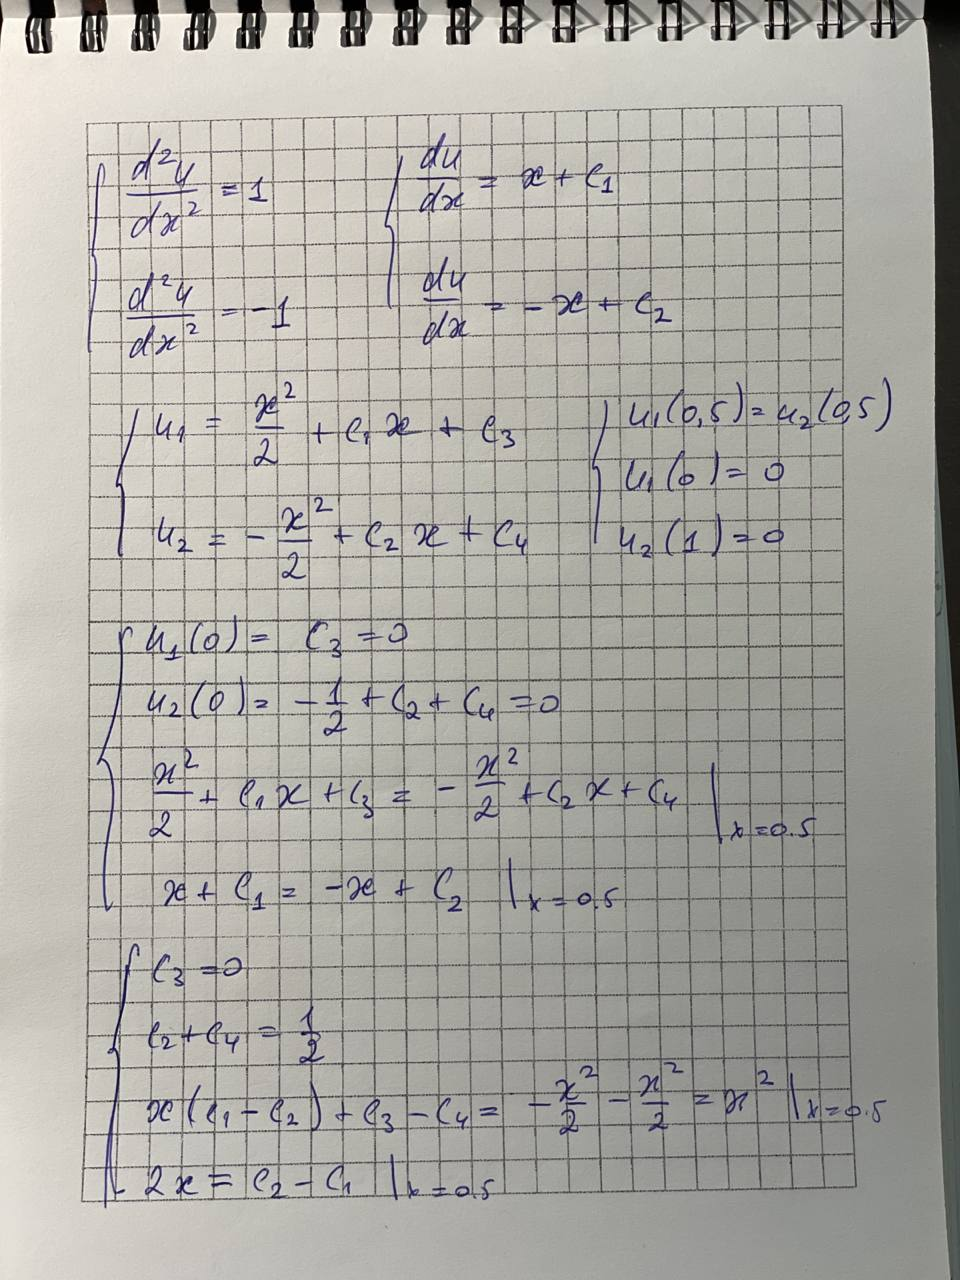 d²u/dx² = 1    du/dx = x + c₁
d²u/dx² = -1    du/dx = -x + c₂
u₁ = x²/2 + c₁x + c₃    u₁(0,5) = u₂(0,5)
u₁(0) = 0
u₂ = -x²/2 + c₂x + c₄    u₂(1) = 0
u₁(0) = c₃ = 0
u₂(0) = -1/2 + c₂ + c₄ = 0
x²/2 + c₁x + c₃ = -x²/2 + c₂x + c₄ |x=0.5
x + c₁ = -x + c₂ |x=0.5
c₃ = 0
c₂ + c₄ = 1/2
x(c₁ - c₂) + c₃ - c₄ = -x²/2 - x²/2 = x² |x=0.5
2x = c₂ - c₁ |x=0.5